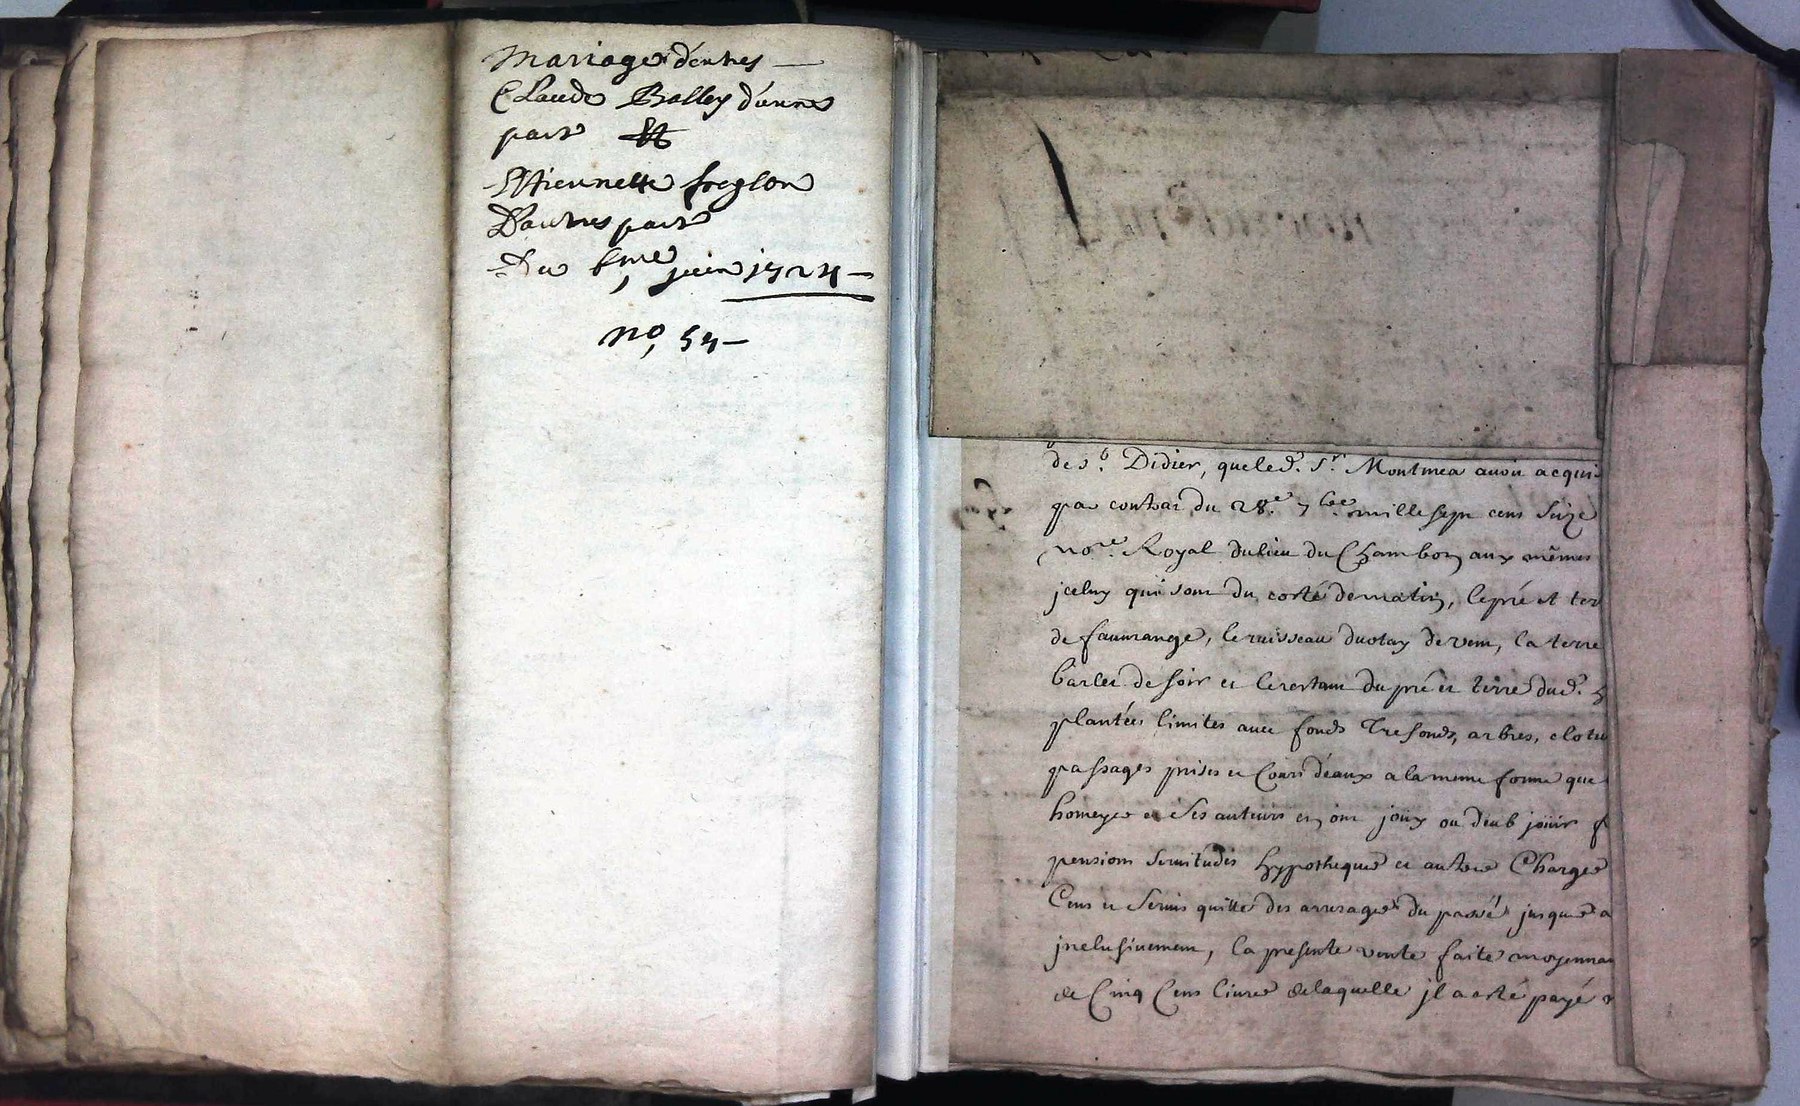 Mariage d'entres
Claude Balley d'unne
part Et
Estiennette freglon
D'autres part
Du 6me juin 1724
No, 54
de St. Didier, que led. Sr. Montmea avoit acquis
par contrat du 28e. 7bre mille sept cens seize
nore. Royal du lieu du Chambon aux mêmes
jcelux qui sont du costé de matin, le pré et ter
de faumange, le ruisseau de vent, la terre
de soir et le restant du pré et terre dud.
plantées limites avec fonds Tresfonds, arbres, clotu
passages prises et Cours d'eaux a la meme forme que
homeyer et Ses auteurs en ont joüy ou deub joüir
pensions servitudes hypotheques et autre Charges
Cens et Servis quitte des arrerages du passé jusques a
jnclusivement, la presente vente faite moyennan
de Cinq Cens livres de laquelle jl a esté payé